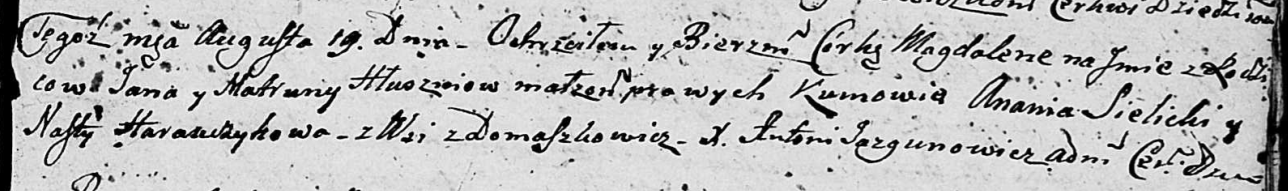 Cerkwi Dziedzi
Tegoż mca Augusta 19. Dnia - Ochrzciłem y Bierzm Corkę Magdalene na Jmie z Rodzi
cow Jana y Matruny Hłuszniow małżeń prawych Kumowie Anania Sielicki y
Nasty Harauczykowa - z Wsi z Domaszkowicz - X. Antoni Jazgunowicz adm Cerk.